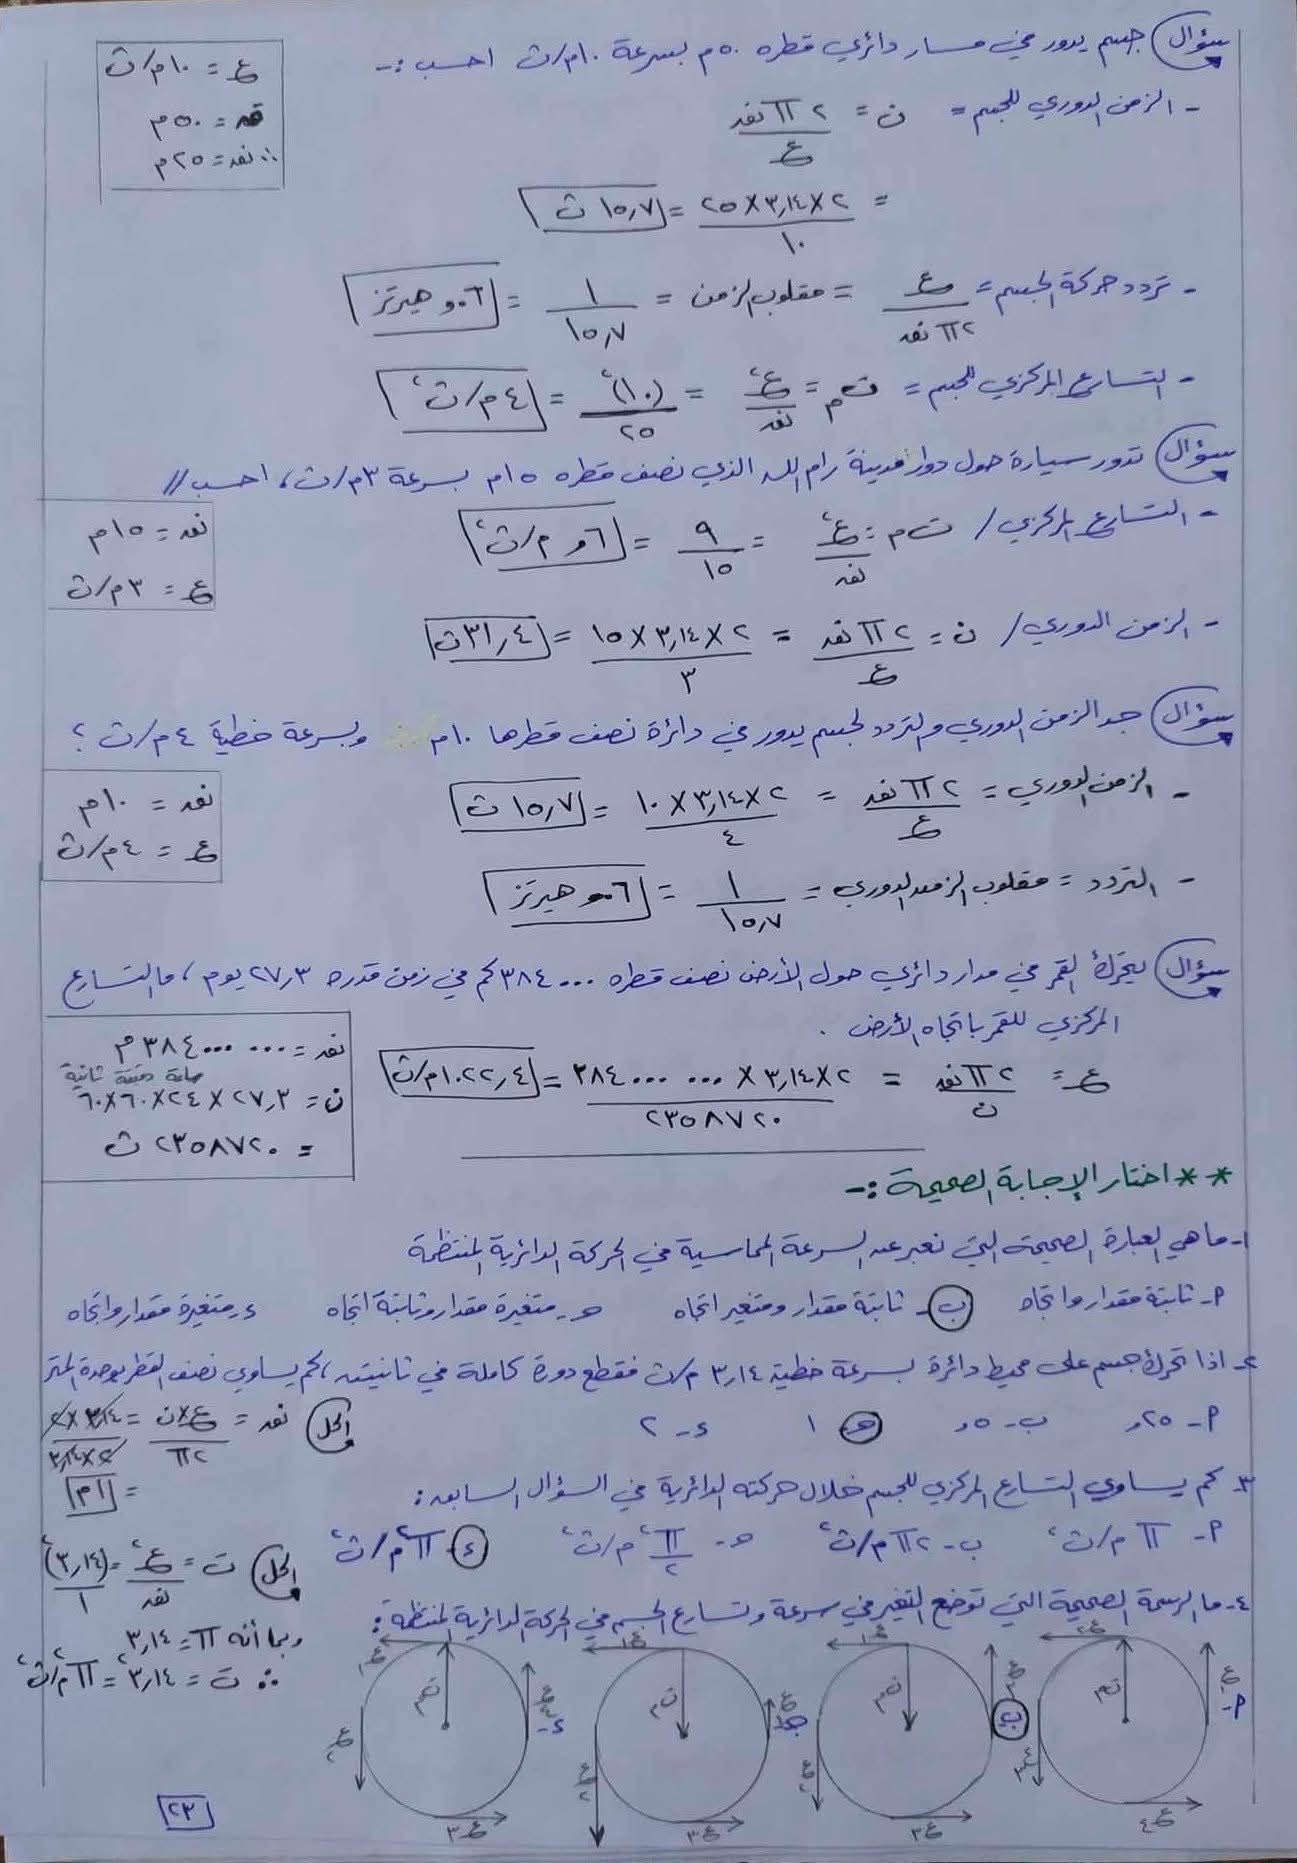 سؤال جسم يدور في مسار دائري قطره ٥٠م بسرعة ١٠م/ث احسب :-
ع = ١٠م/ث
قد = ٥٠م
∴ نقـ = ٢٥م
- الزمن الدوري للجسم = ن = ٢ π نقـ / ع
= ٢×٣,١٤×٢٥ / ١٠ = ١٥,٧ ث
- تردد حركة الجسم = ع / ٢π نقـ = مقلوب الزمن = ١ / ١٥,٧ = ٠٦,و هيرتز
- التسارع المركزي للجسم = تم = ع² / نقـ = (١٠)² / ٢٥ = ٤م/ث²
سؤال تدور سيارة حول دوار مدينة رام الله الذي نصف قطره ١٥م بسرعة ٣م/ث، احسب//
نقـ = ١٥م
ع = ٣م/ث
- التسارع المركزي/ تم = ع² / نقـ = ٩ / ١٥ = ٦,و م/ث²
- الزمن الدوري/ ن = ٢π نقـ / ع = ٢×٣,١٤×١٥ / ٣ = ٣١,٤ث
سؤال جد الزمن الدوري والتردد لجسم يدور في دائرة نصف قطرها ١٠م وبسرعة خطية ٤م/ث ؟
نقـ = ١٠م
ع = ٤م/ث
- الزمن الدوري = ٢π نقـ / ع = ٢×٣,١٤×١٠ / ٤ = ١٥,٧ ث
- التردد = مقلوب الزمن الدوري = ١ / ١٥,٧ = ٠٦,و هيرتز
سؤال يتحرك القمر في مدار دائري حول الأرض نصف قطره ٣٨٤٠٠٠كم في زمن قدره ٢٧,٣ يوم، ما التسارع
المركزي للقمر باتجاه الأرض .
نقـ = ٣٨٤٠٠٠٠٠٠م
ساعة دقيقة ثانية
ن = ٢٧,٣×٢٤×٦٠×٦٠
= ٢٣٥٨٧٢٠ ث
ع = ٢π نقـ / ن = ٢×٣,١٤×٣٨٤٠٠٠٠٠٠ / ٢٣٥٨٧٢٠ = ١٠٢٢,٤م/ث
** اختار الإجابة الصحيحة :-
١- ما هي العبارة الصحيحة التي تعبر عن السرعة المماسية في الحركة الدائرية المنتظمة
أ- ثابتة مقدار واتجاه ب- ثابتة مقدار ومتغير اتجاه حـ- متغيرة مقدار وثابتة اتجاه د- متغيرة مقدار واتجاه
٢- اذا تحرك جسم على محيط دائرة بسرعة خطية ٣,١٤ م/ث فقطع دورة كاملة في ثانيتين، كم يساوي نصف القطر بوحدة المتر
أ- ٢٥,و ب- ٥,و حـ- ١ د- ٢
الحل نقـ = ع×ن / ٢π = ٣,١٤×٢ / ٢×٣,١٤
= ١م
٣- كم يساوي التسارع المركزي للجسم خلال حركته الدائرية في السؤال السابق :
أ- π م/ث² ب- ٢π م/ث² حـ- π² / ٢ م/ث² د- π² م/ث²
الحل ت = ع² / نقـ = (٣,١٤)² / ١
وبما أنه π = ٣,١٤
∴ ت = ٣,١٤² = π² م/ث²
٤- ما الرسمة الصحيحة التي توضح التغير في سرعة وتسارع الجسم في الحركة الدائرية المنتظمة :
أ- ع١ ع٢ ع٣ ع٤ تم
ب ع ع١ ع٢ ع٣ تم
حـ ع ع١ ع٢ ع٣ تم
د- ع٤ ع١ ع٢ ع٣ تم
٢٣